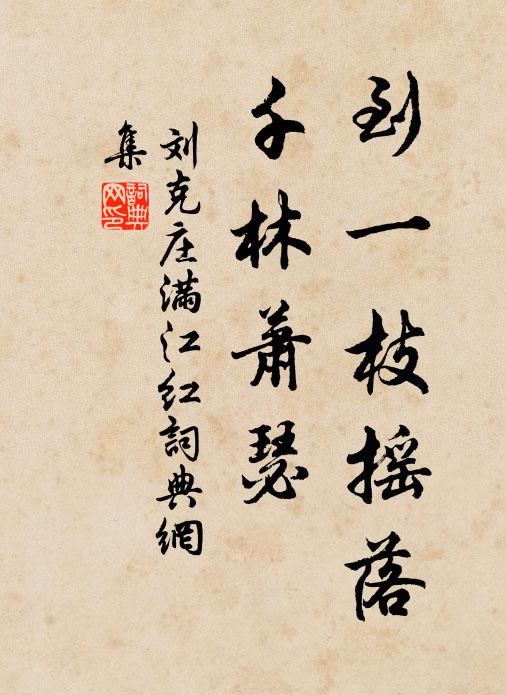 到一枝摇落
千林萧瑟
刘克庄满江红詞典網
集
詞典网印